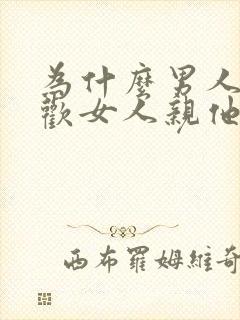 為什麼男人
歡女人親他
西布羅姆維奇